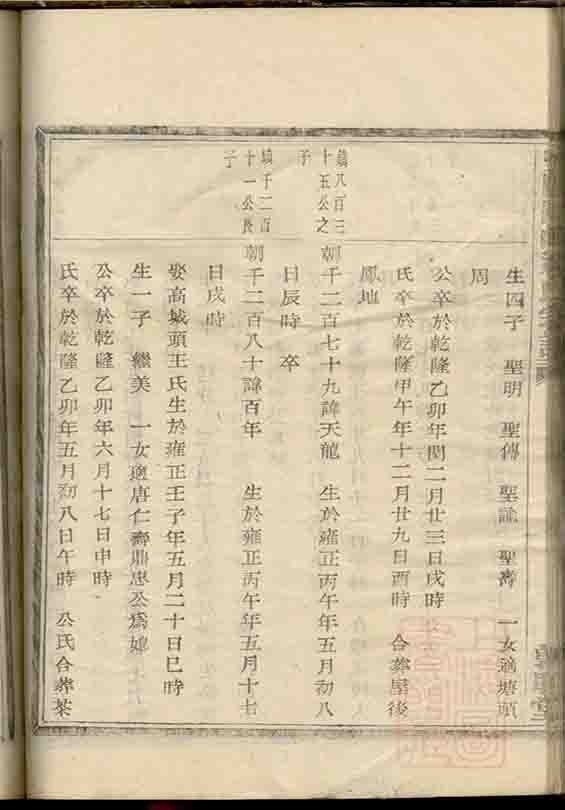 生四子 聖明 聖傳 聖諭 聖壽 一女適塘頭
周
公卒於乾隆乙卯年閏二月廿三日戌時
氏卒於乾隆甲午年十二月廿九日酉時 合葬屋後
鳳地
鎮八百三
十五公之
子
朝千二百七十九諱天龍 生於雍正丙午年五月初八
日辰時 卒
鎮千二百
十一公長
子
朝千二百八十諱百年 生於雍正丙午年五月十七
日戌時
娶高城頭王氏生於雍正壬子年五月二十日巳時
生一子 繼美 一女適唐仁壽鼎忠公爲媳
公卒於乾隆乙卯年六月十七日申時
氏卒於乾隆乙卯年五月初八日午時 公氏合葬茶